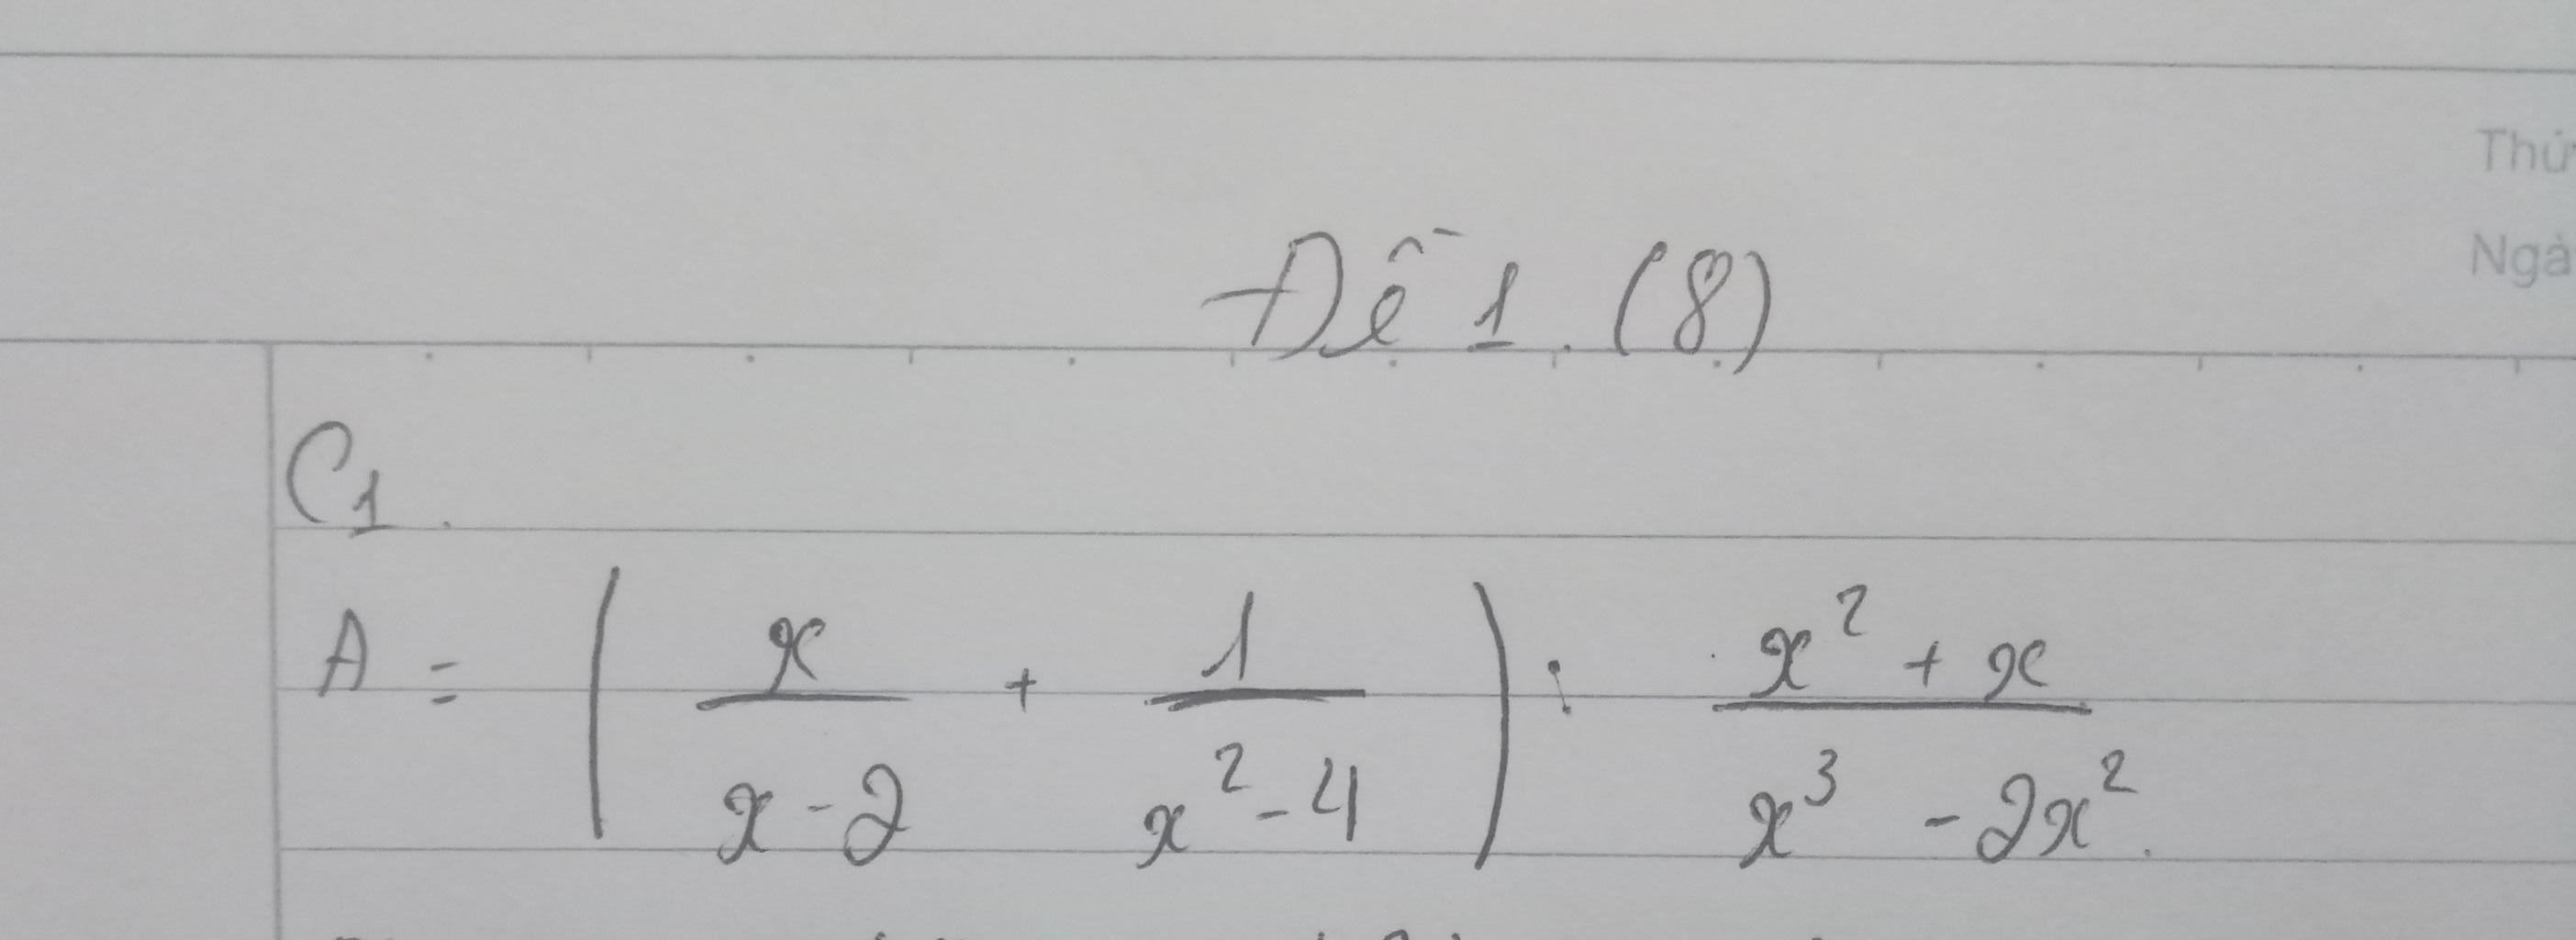 Thứ
Ngà
Đề 1. (8)
C1.
A = ( x / x - 2 + 1 / x² - 4 ) : x² + x / x³ - 2x².